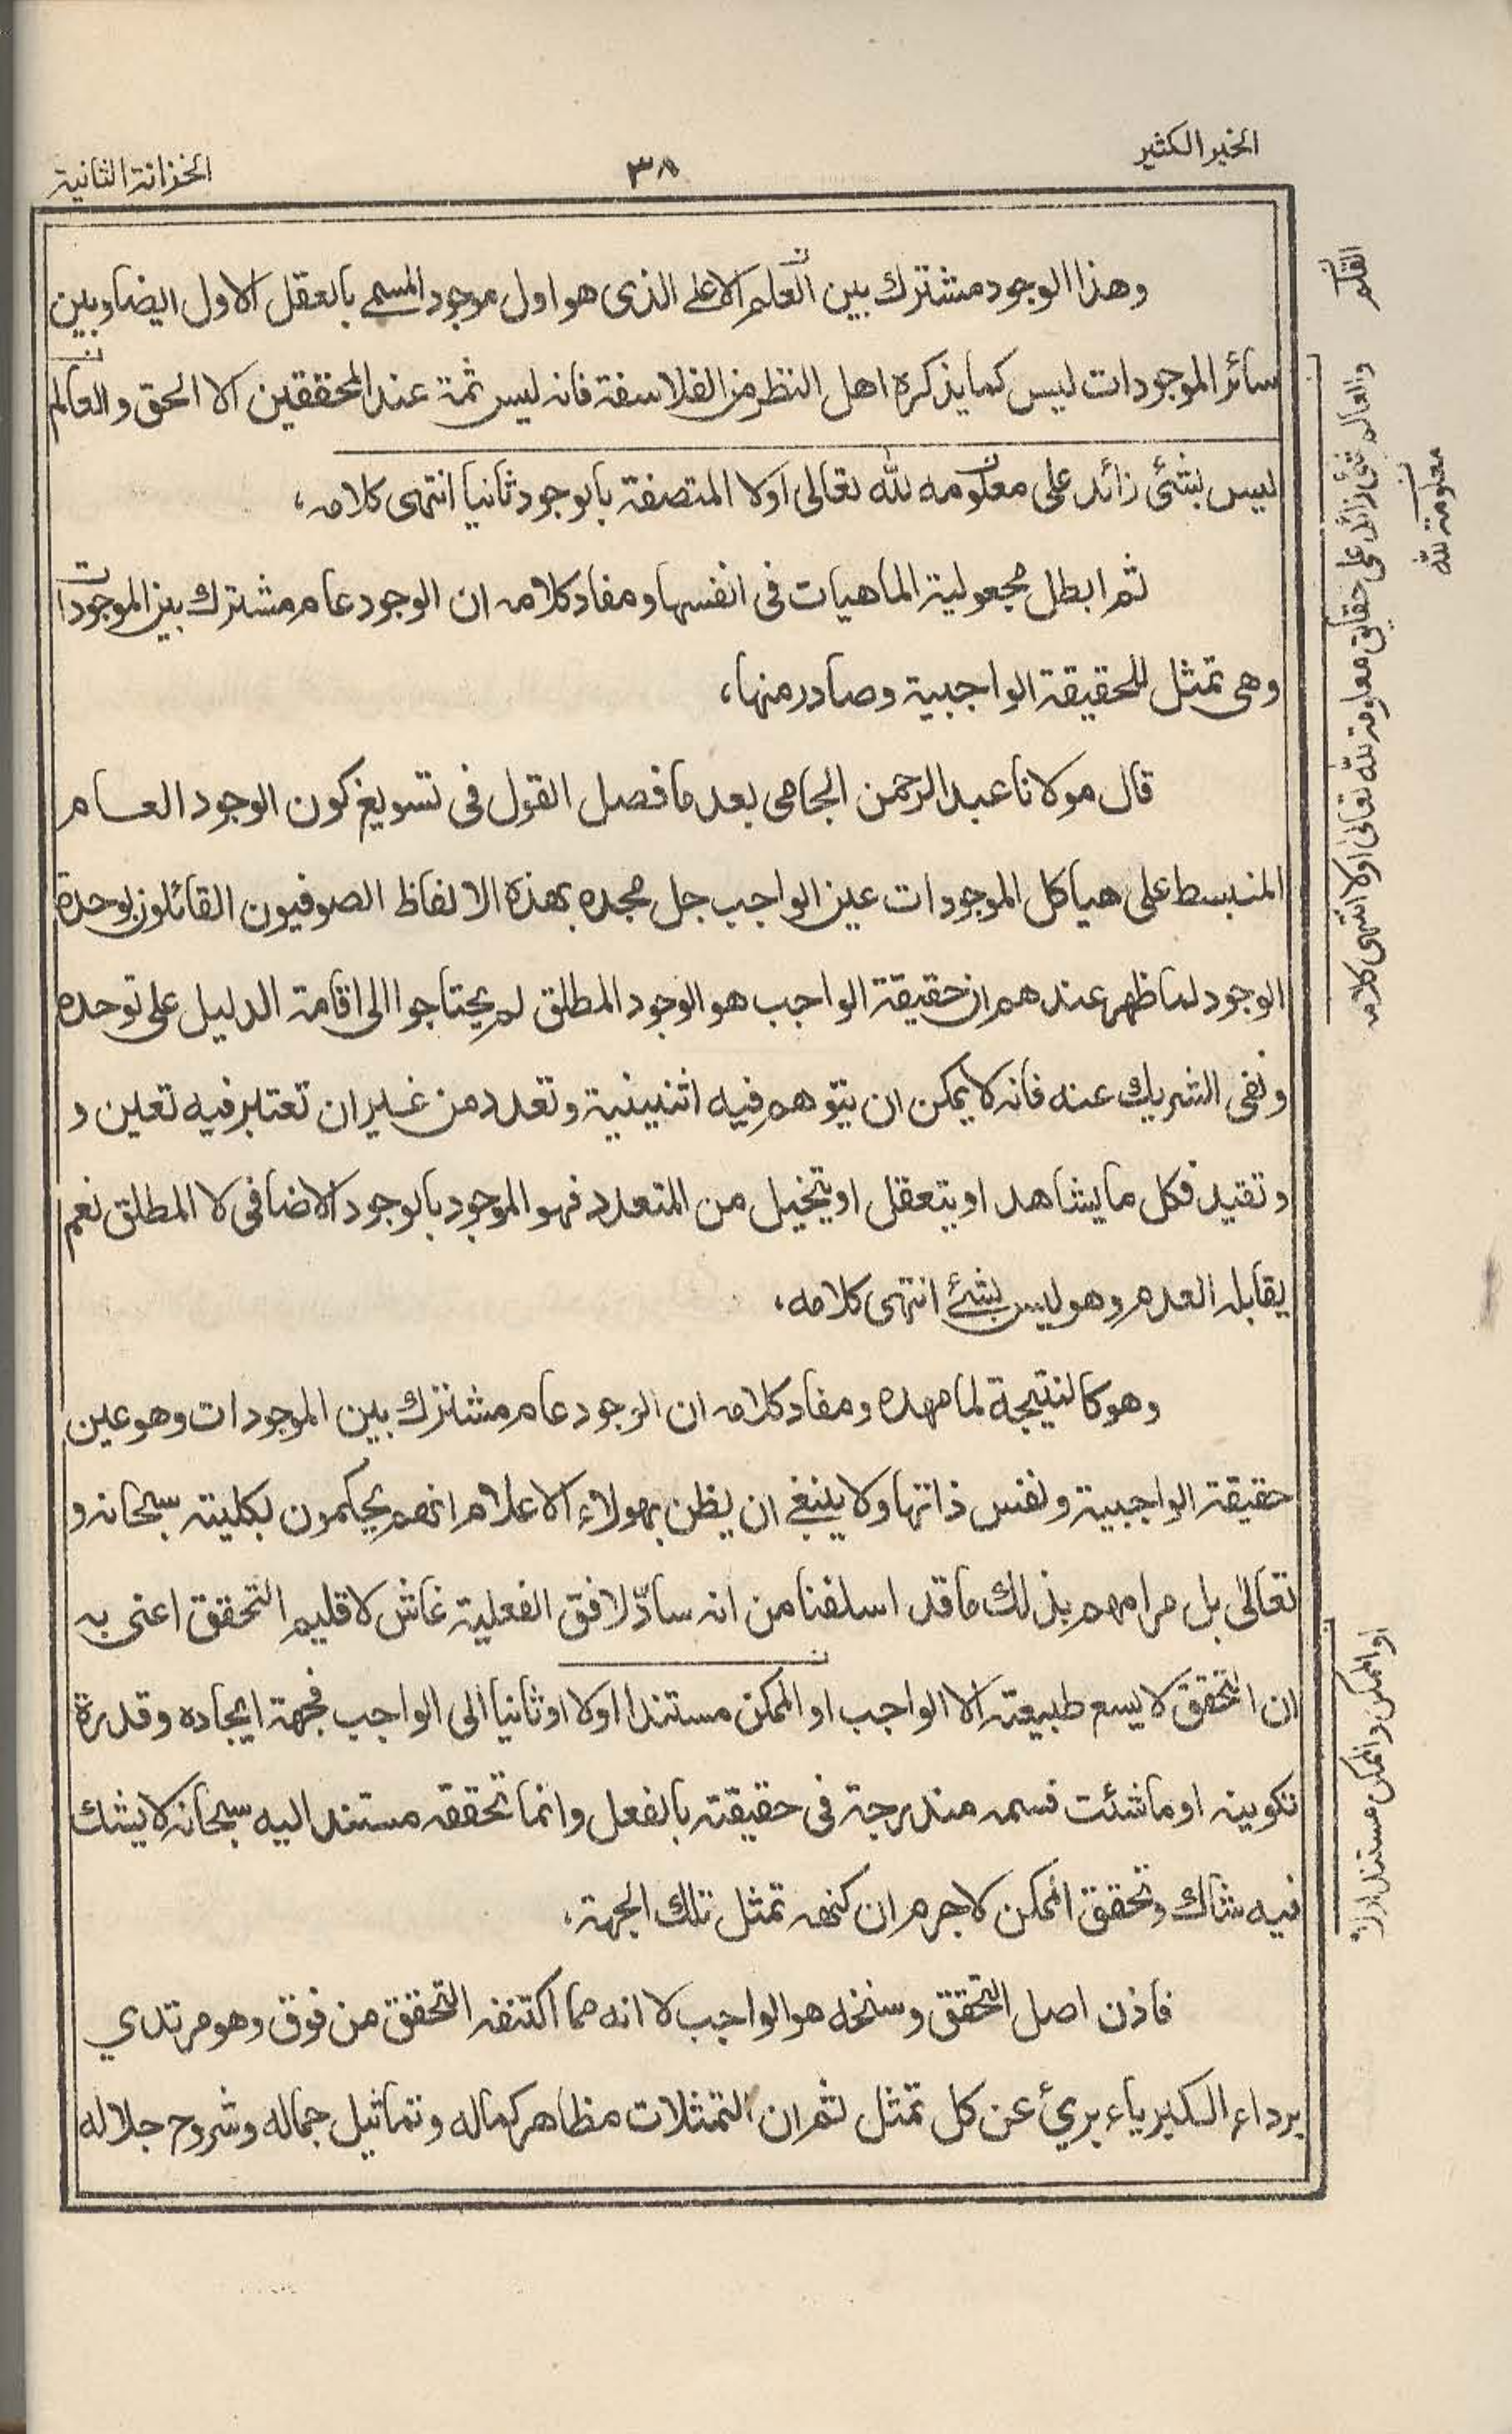 الخير الكثير
٣٨
الخزانة الثانية
وهذا الوجود مشترك بين العلم الاعلى الذى هو اول موجود المسمى بالعقل الاول ايضا وبين
سائر الموجودات ليس كما يذكره اهل النظر من الفلاسفة فانه ليس ثمة عند المحققين الا الحق والعالم
ليس بشئ زائد على معلومه لله تعالى اولا المتصفة بالوجود ثانيا انتهى كلامه،
ثم ابطل مجعولية الماهيات فى انفسها ومفاد كلامه ان الوجود عام مشترك بين الموجودات
وهى تمثل للحقيقة الواجبية وصادر منها،
قال مولانا عبد الرحمن الجامى بعد ما فصل القول فى تسويغ كون الوجود العام
المنبسط على هياكل الموجودات عين الواجب جل مجده بهذة الالفاظ الصوفيون القائلون بوحدة
الوجود لما ظهر عندهم ان حقيقة الواجب هو الوجود المطلق لم يحتاجوا الى اقامة الدليل على توحده
ونفى الشريك عنه فانه لا يمكن ان يتوهم فيه اثنينية وتعدد من غير ان تعتبر فيه تعين و
وتقيد فكل ما يشاهد او يتعقل او يتخيل من المتعدد فهو الموجود بالوجود الاضافى لا المطلق نعم
يقابله العدم وهو ليس بشئ انتهى كلامه،
وهو كالنتيجة لما مهده ومفاد كلامه ان الوجود عام مشترك بين الموجودات وهو عين
حقيقة الواجبية ونفس ذاتها ولا ينبغى ان يظن بهولاء الاعلام انهم يحكمون بكليته سبحانه و
تعالى بل مرامهم بذلك ما قد اسلفنا من انه سادّ لافق الفعلية غاش لاقليم التحقق اعنى به
ان التحقق لا يسع طبيعته الا الواجب او الممكن مستندا اولا او ثانيا الى الواجب فجهة ايجاده وقدرة
تكوينه او ما شئت فسمه مندرجة فى حقيقته بالفعل وانما تحققه مستند اليه سبحانه لا يشك
فيه شاك وتحقق الممكن لا جرم ان كنهه تمثل تلك الجهة،
فاذن اصل التحقق وسنخه هو الواجب لا انه مما اكتنفه التحقق من فوق وهو مرتدي
برداء الكبرياء بريئ عن كل تمثل ثم ان التمثلات مظاهر كماله وتماثيل جماله وشروح جلاله
القلم
والعالم شئ زائد على حقايق معلومة لله تعالى اولا انتهى كلامه
معلومة لله
او الممكن والممكن مستند اولا